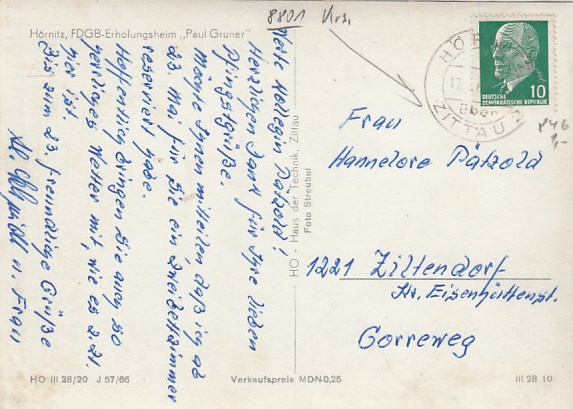 8801 Krs.
Hörnitz, FDGB-Erholungsheim „Paul Gruner"
Werte Kollegin Pätzold!
Herzlichen Dank für Ihre lieben
Pfingstgrüße.
Möchte Ihnen mitteilen, daß ich ab
23. Mai für Sie ein Zweibettzimmer
reserviert habe.
Hoffentlich bringen Sie auch so
herrliches Wetter mit, wie es z.Zt.
hier ist.
Bis zum 23. freundliche Grüße
Schmidt u. Frau
HO - Haus der Technik, Zittau
Foto Streubel
HÖ
17.
über
ZITTAU 2
10
DEUTSCHE
DEMOKRATISCHE REPUBLIK
846
1,-
Frau
Hannelore Pätzold
1221 Ziltendorf
Kr. Eisenhüttenst.
Gorreweg
HO III 28/20 J 57/66
Verkaufspreis MDN 0,25
III 28 10